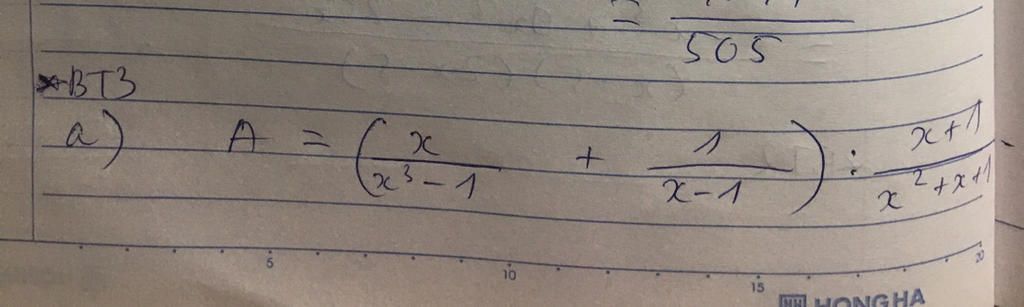 = 505
*BT3
a) A = (x/(x³-1) + 1/(x-1)) : (x+1)/(x²+x+1)
5 10 15 20
HH HONG HA